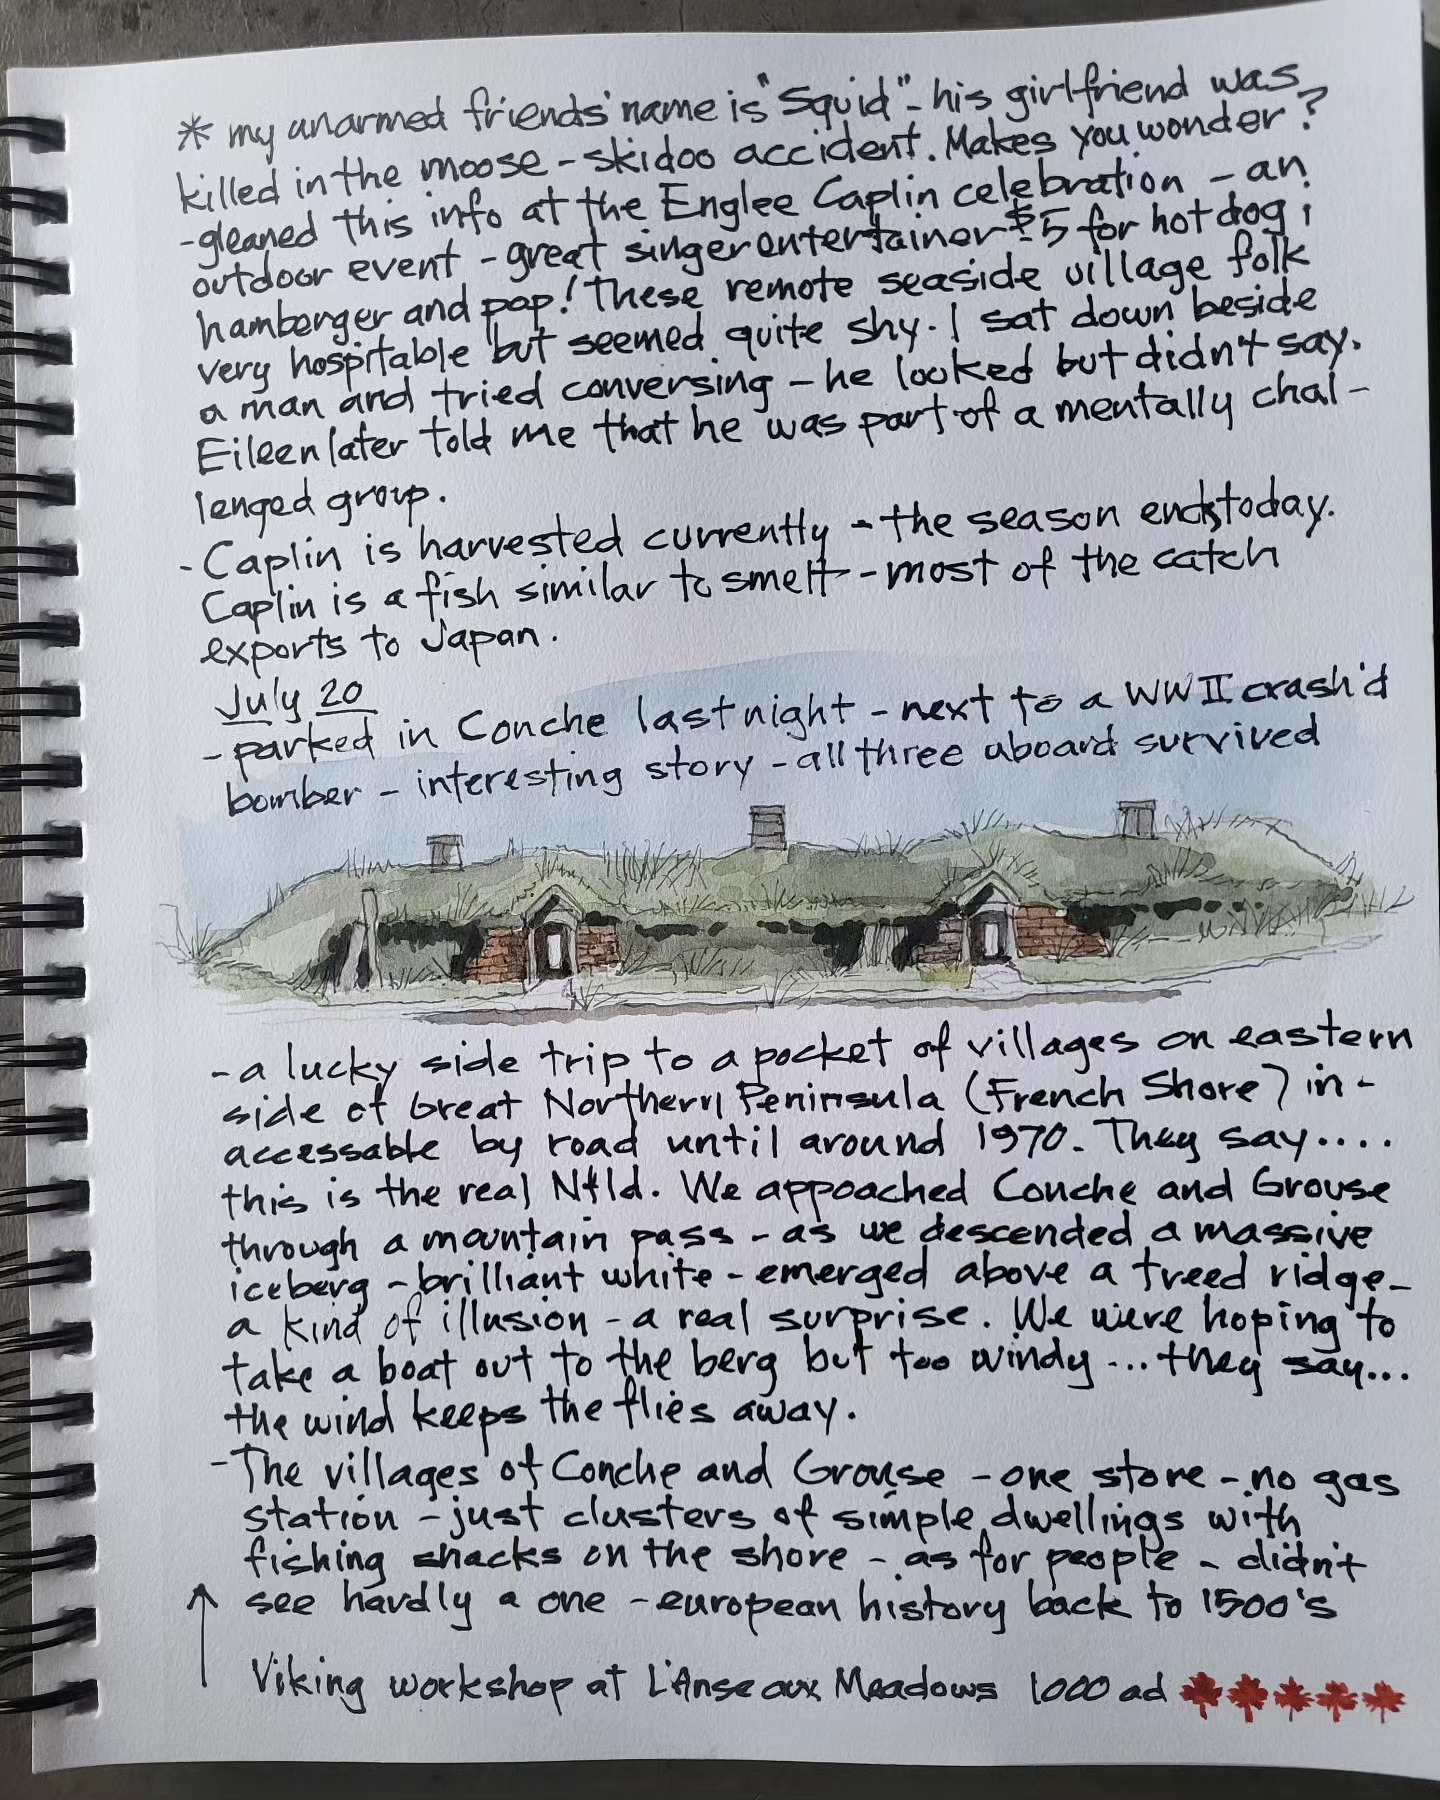 * my unarmed friends' name is "Squid" - his girlfriend was
killed in the moose - skidoo accident. Makes you wonder?
- gleaned this info at the Englee Caplin celebration - an
outdoor event - great singer entertainer $5 for hotdog,
hamberger and pop! These remote seaside village folk
very hospitable but seemed quite shy. I sat down beside
a man and tried conversing - he looked but didn't say.
Eileen later told me that he was part of a mentally chal-
lenged group.
- Caplin is harvested currently - the season ends today.
Caplin is a fish similar to smelt - most of the catch
exports to Japan.
July 20
- parked in Conche last night - next to a WWII crash'd
bomber - interesting story - all three aboard survived
- a lucky side trip to a pocket of villages on eastern
side of Great Northern Peninsula (French Shore) in-
accessable by road until around 1970. They say....
this is the real Nfld. We appoached Conche and Grouse
through a mountain pass - as we descended a massive
iceberg - brilliant white - emerged above a treed ridge -
a kind of illusion - a real surprise. We were hoping to
take a boat out to the berg but too windy ... they say...
the wind keeps the flies away.
- The villages of Conche and Grouse - one store - no gas
station - just clusters of simple dwellings with
fishing shacks on the shore - as for people - didn't
see hardly a one - european history back to 1500's
Viking workshop at L'Anse aux Meadows 1000 ad